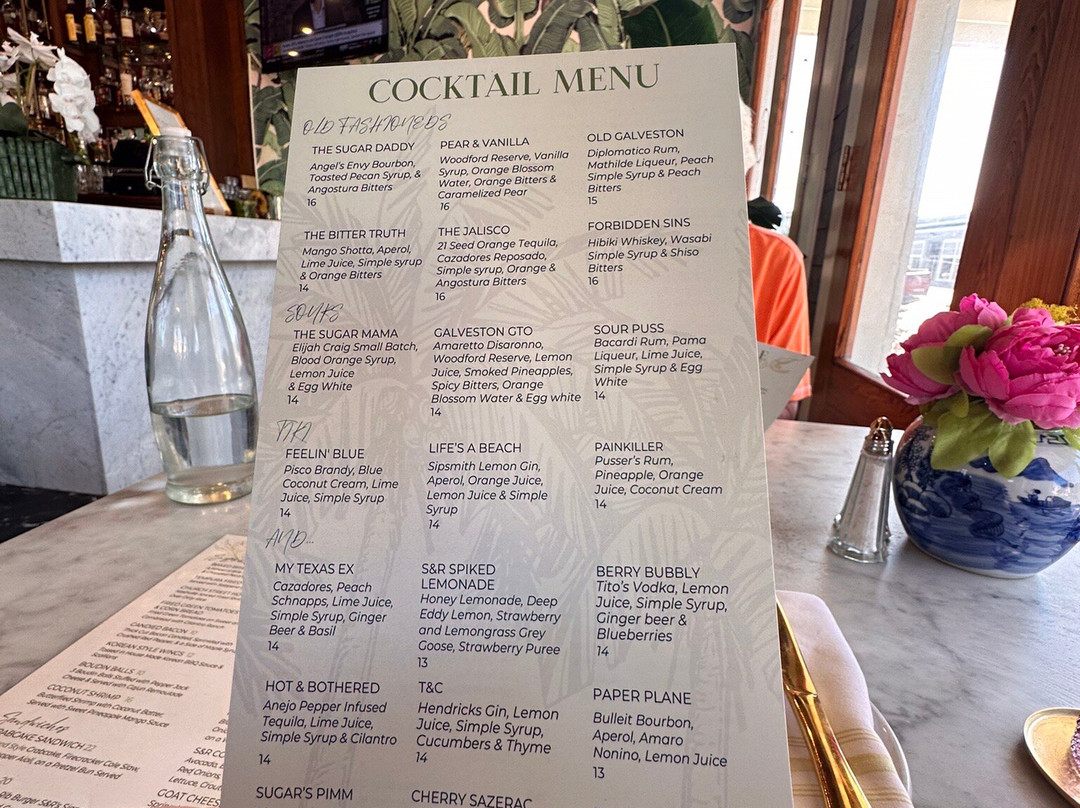 COCKTAIL MENU
OLD FASHIONEDS
THE SUGAR DADDY
Angel's Envy Bourbon,
Toasted Pecan Syrup, &
Angostura Bitters
16
PEAR & VANILLA
Woodford Reserve, Vanilla
Syrup, Orange Blossom
Water, Orange Bitters &
Caramelized Pear
16
OLD GALVESTON
Diplomatico Rum,
Mathilde Liqueur, Peach
Simple Syrup & Peach
Bitters
15
THE BITTER TRUTH
Mango Shotta, Aperol,
Lime Juice, Simple syrup
& Orange Bitters
14
THE JALISCO
21 Seed Orange Tequila,
Cazadores Reposado,
Simple syrup, Orange &
Angostura Bitters
16
FORBIDDEN SINS
Hibiki Whiskey, Wasabi
Simple Syrup & Shiso
Bitters
16
SOURS
THE SUGAR MAMA
Elijah Craig Small Batch,
Blood Orange Syrup,
Lemon Juice
& Egg White
14
GALVESTON GTO
Amaretto Disaronno,
Woodford Reserve, Lemon
Juice, Smoked Pineapples,
Spicy Bitters, Orange
Blossom Water & Egg white
14
SOUR PUSS
Bacardi Rum, Pama
Liqueur, Lime Juice,
Simple Syrup & Egg
White
14
TIKI
FEELIN' BLUE
Pisco Brandy, Blue
Coconut Cream, Lime
Juice, Simple Syrup
14
LIFE'S A BEACH
Sipsmith Lemon Gin,
Aperol, Orange Juice,
Lemon Juice & Simple
Syrup
14
PAINKILLER
Pusser's Rum,
Pineapple, Orange
Juice, Coconut Cream
14
AND...
MY TEXAS EX
Cazadores, Peach
Schnapps, Lime Juice,
Simple Syrup, Ginger
Beer & Basil
14
S&R SPIKED
LEMONADE
Honey Lemonade, Deep
Eddy Lemon, Strawberry
and Lemongrass Grey
Goose, Strawberry Puree
13
BERRY BUBBLY
Tito's Vodka, Lemon
Juice, Simple Syrup,
Ginger beer &
Blueberries
14
HOT & BOTHERED
Anejo Pepper Infused
Tequila, Lime Juice,
Simple Syrup & Cilantro
14
T&C
Hendricks Gin, Lemon
Juice, Simple Syrup,
Cucumbers & Thyme
14
PAPER PLANE
Bulleit Bourbon,
Aperol, Amaro
Nonino, Lemon Juice
13
SUGAR'S PIMM
CHERRY SAZERAC
FRIED GREEN TOMATOES
& CORN BREAD
CANDIED BACON 12
KOREAN STYLE WINGS 12
Tossed in House Made Korean BBQ Sauce &
Scallions
BOUDIN BALLS 10
3 Boudin Balls Stuffed with Pepper Jack
Cheese & Served with Cajun Remoulade
COCONUT SHRIMP 16
Butterflied Shrimp with Coconut Batter,
Served with Sweet Pineapple Mango Sauce
ABCAKE SANDWICH 22
Style Crabcake, Firecracker Cole Slaw,
Aioli, on a Pretzel Bun Served
20
GOAT CHEES